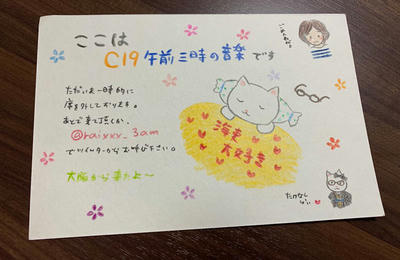 ここは
C19 午前三時の音楽です
ごめんね。
ただいま一時的に
席を外しております。
あとで来て頂くか、
@raixxx_3am
でツイッターからお呼び下さい。
大阪から来たよ〜
海老
大好き
たかなし